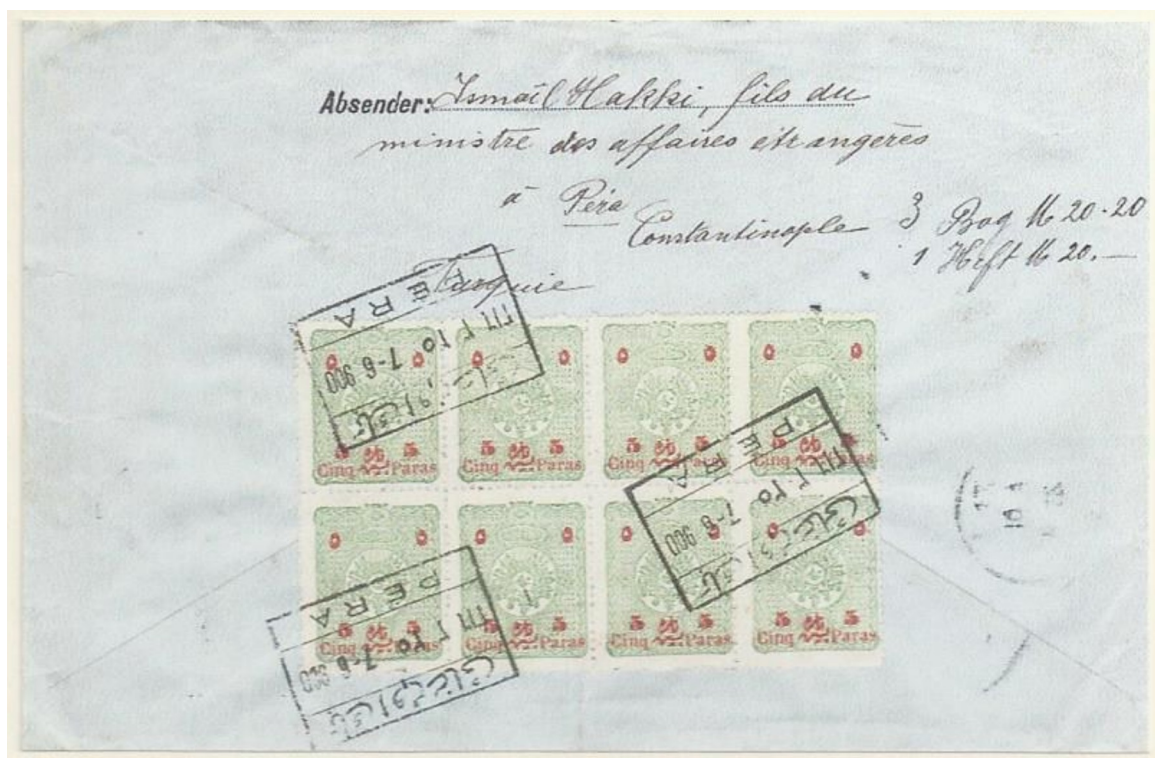 Absender: Ismaïl Hakki, fils du
ministre des affaires étrangères
à Péra
Constantinople
Turquie
3 Bog M 20-20
1 Heft M 20.—
PERA
7-6 900
PERA
7-6 900
PERA
7-6 900
٥ ٥ ٥ ٥ ٥ ٥ ٥ ٥
5 5 5 5 5 5 5 5
Cinq Paras Cinq Paras Cinq Paras Cinq Paras
٥ ٥ ٥ ٥ ٥ ٥ ٥ ٥
5 5 5 5 5 5 5 5
Cinq Paras Cinq Paras Cinq Paras Cinq Paras